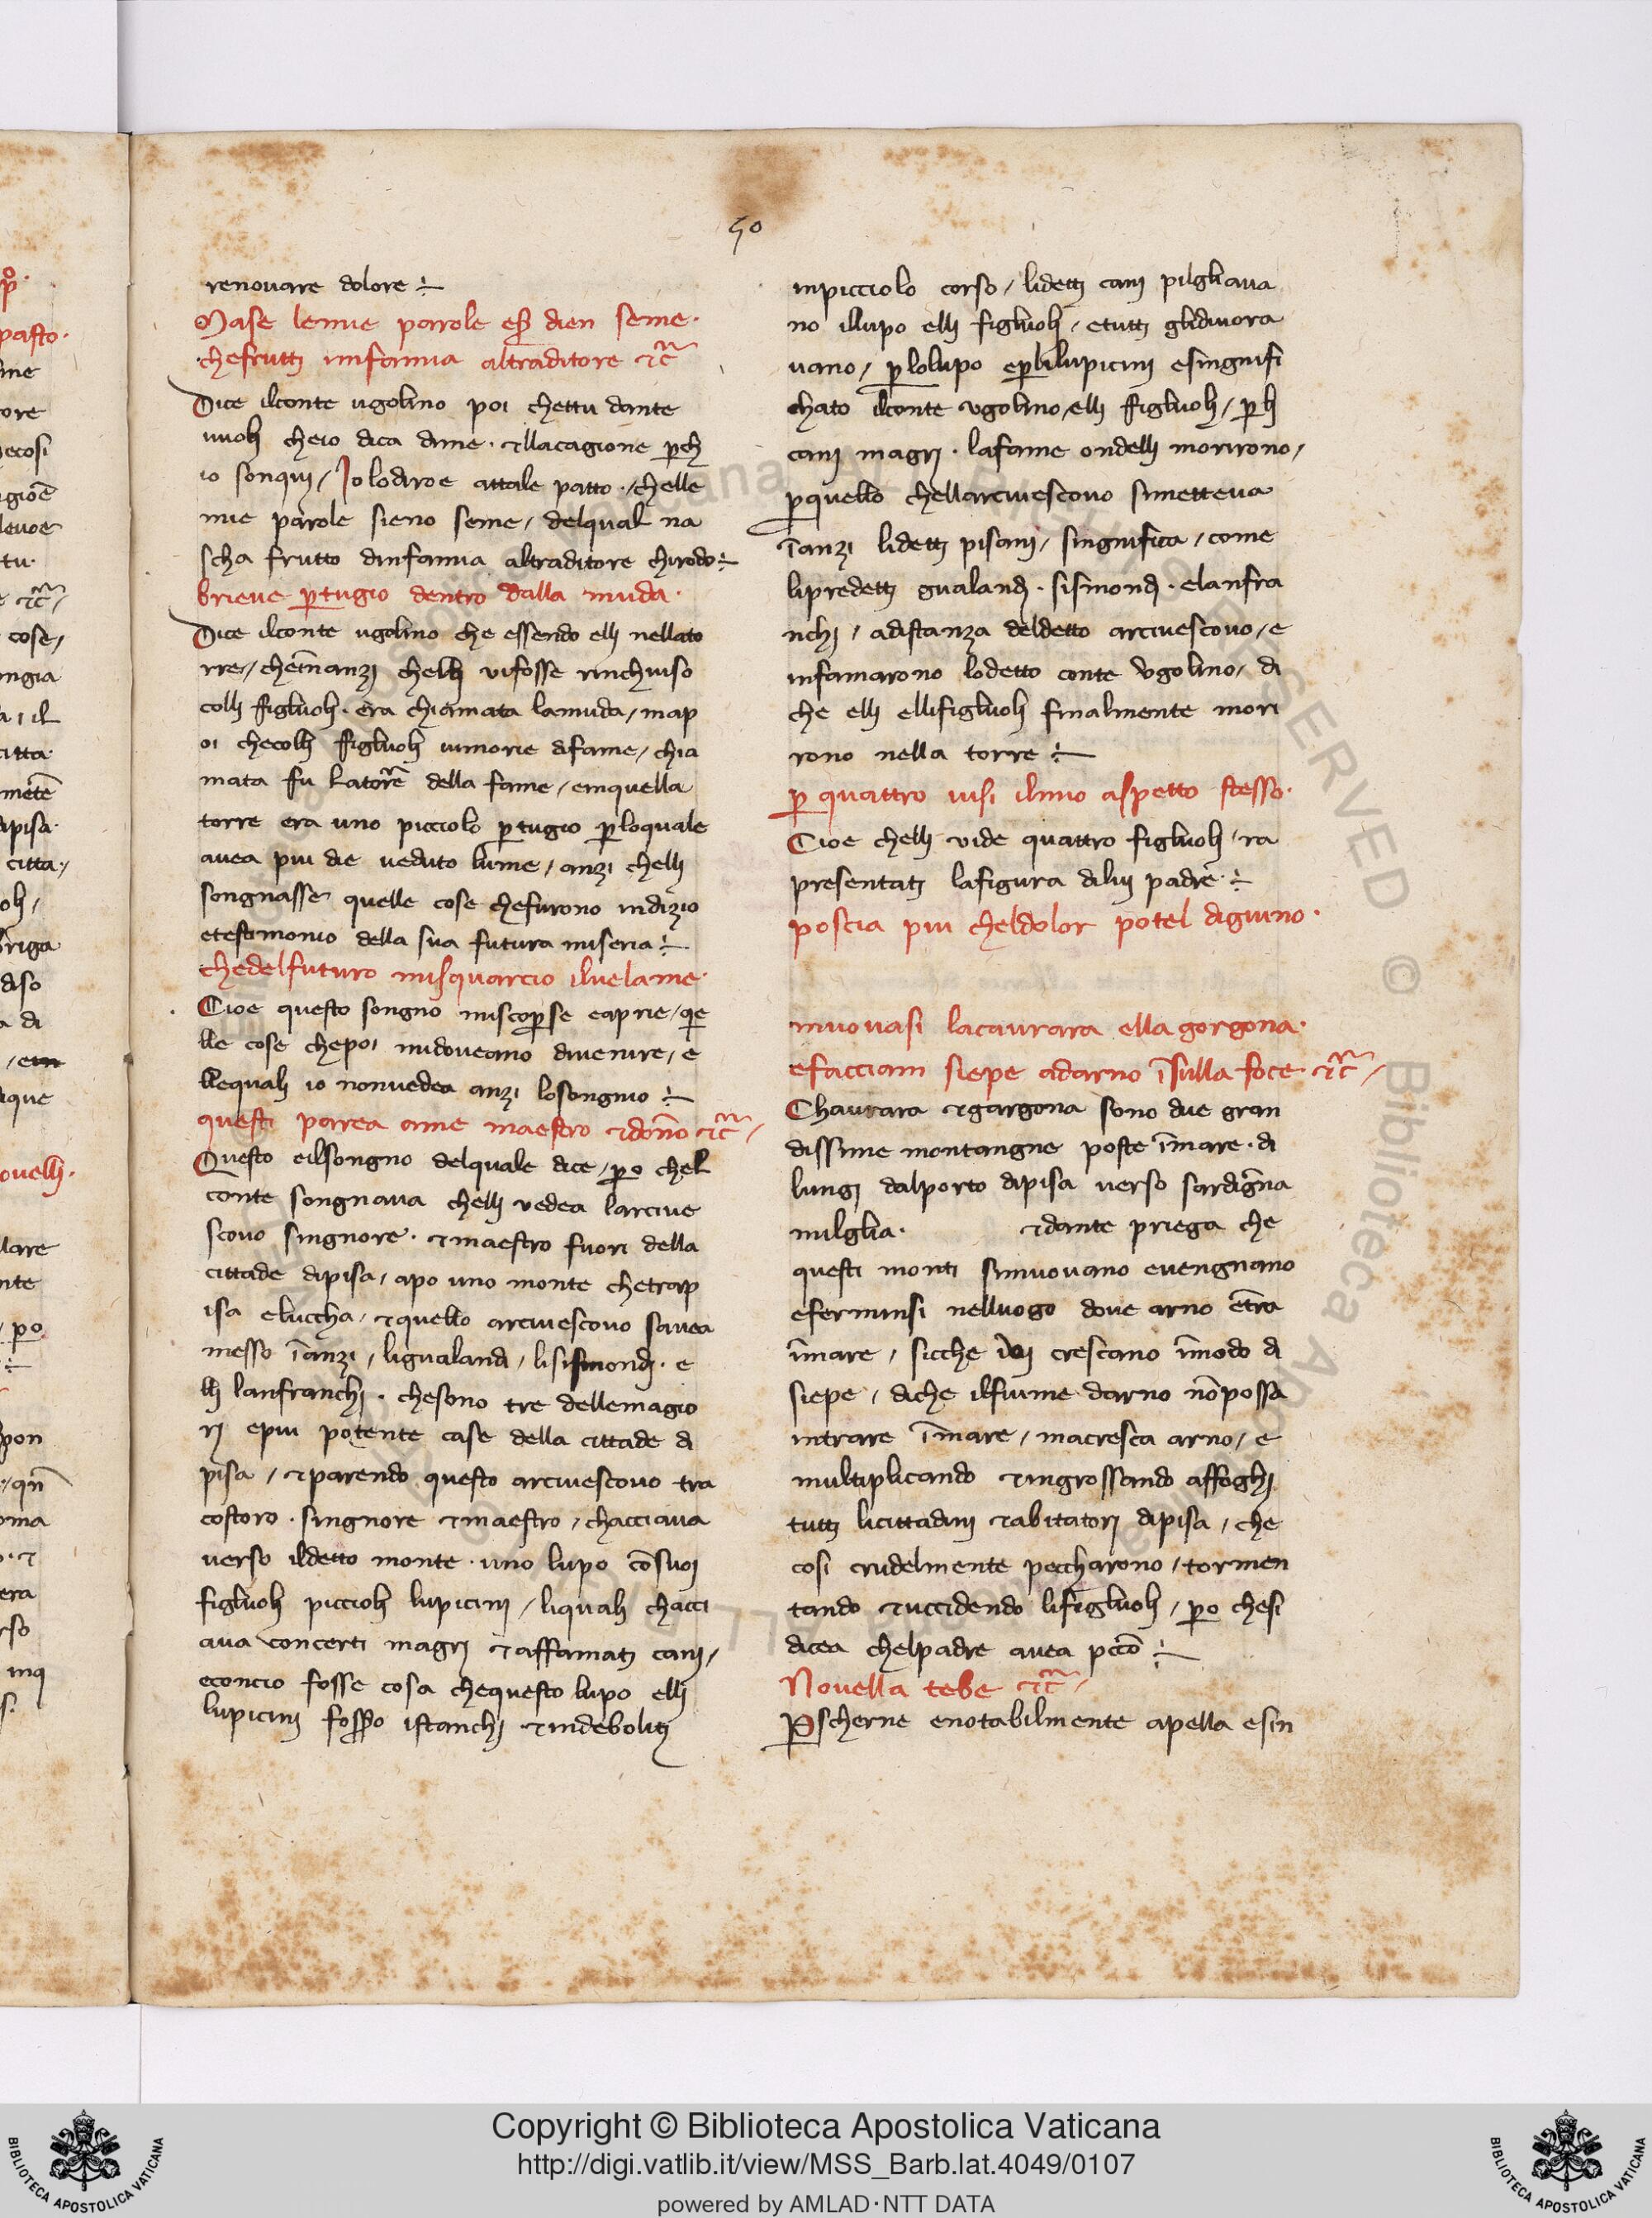 50
renovare dolore ÷
Mase lemie parole eß dien seme·
·chefrutti imfamia altraditore &c̃
Dice ilconte ugolino poi chettu dante
vuoli cheio dica dime · &llacagione perche
io sonqui / Io lodiroe attale patto · / chelle
mie parole sieno seme / delqual na
scha frutto dinfamia altraditore chirodo ÷
brieve ptugio dentro dalla muda ·
Dice ilconte ugolino che essendo elli nellato
rre / cheĩnanzi chelli vifosse rinchiuso
colli figluoli · era chiamata lamuda / map
oi checolli figluoli vimorie difame / chia
mata fu Latorre della fame / einquella
torre era uno picciolo ptugio ploquale
avea piu die veduto lume / anzi chelli
songnasse quelle cose chefurono indizio
etestimonio della sua futura miseria ÷
chedelfuturo misquarcio ilvelame ·
Cioe questo songno miscopse eaprie / que
lle cose chepoi midoveano divenire / e
llequali io nonvedea anzi losongnio ÷
questi parea ame maestro &don̄o &c̃ /
Questo eilsongno delquale dice / po chel
conte songnava chelli vedea larcive
scovo singnore · &maestro fuori della
cittade dipisa / apo uno monte chetrap
isa eluccha / &quello arcivescovo savea
messo ĩanzi / ligualandi / lisismondi · e
lli lanfranchi · chesono tre dellemagio
ri epiu potente case della cittade di
pisa / &parendo questo arcivescovo tra
costoro · singnore &maestro / chacciava
verso ildetto monte · uno lupo cõsuoi
figluoli piccioli lupicini / liquali chacci
ava concerti magri &affamati cani /
econcio fosse cosa chequesto lupo elli
lupicini fosso istanchi &indeboliti
inpicciolo corso / lidetti cani pilgliava
no illupo elli figluoli / etutti glidivora
vano / plolupo eplilupicini esingnifi
chato ilconte ugolino / elli figluoli / pli
cani magri · lafame ondelli morirono /
pquello chellarcivescovo simetteva
ĩanzi lidetti pisani / singnifica / come
lipredetti gualandi · sismondi · elanfra
nchi / adistanza deldetto arcivescovo / e
infamarono lodetto conte ugolino / di
che elli ellifigluoli finalmente mori
rono nella torre ÷
p quattro visi ilmio aspetto stesso ·
Cioe chelli vide quattro figluoli / ra
presentati lafigura dilui padre ÷
poscia piu cheldolor potel digiuno ·
muovasi lacavrara ella gorgona ·
efacciam siepe adarno ĩsulla foce &c̃ /
Chavrara &gargona sono due gran
dissime montangne poste ĩmare · di
lungi dalporto dipisa verso sardigna
milglia ·     &dante priega che
questi monti simuovano evengnano
eferminsi nelluogo dove arno ẽtra
ĩmare / sicche ivi crescano ĩmodo di
siepe / diche ilfiume darno nõpossa
intrare ĩmare / macresca arno / e
multiplicando &ingrossando affoghi
tutti licittadini &abitatori dipisa / che
cosi crudelmente peccharono / tormen
tando &uccidendo lifigluoli / po chesi
dicea chelpadre avea pccõ ÷
Novella tebe &c̃ /
Pscherne enotabilmente apella esin
Copyright © Biblioteca Apostolica Vaticana
http://digi.vatlib.it/view/MSS_Barb.lat.4049/0107
powered by AMLAD·NTT DATA
BIBLIOTECA APOSTOLICA VATICANA
BIBLIOTECA APOSTOLICA VATICANA